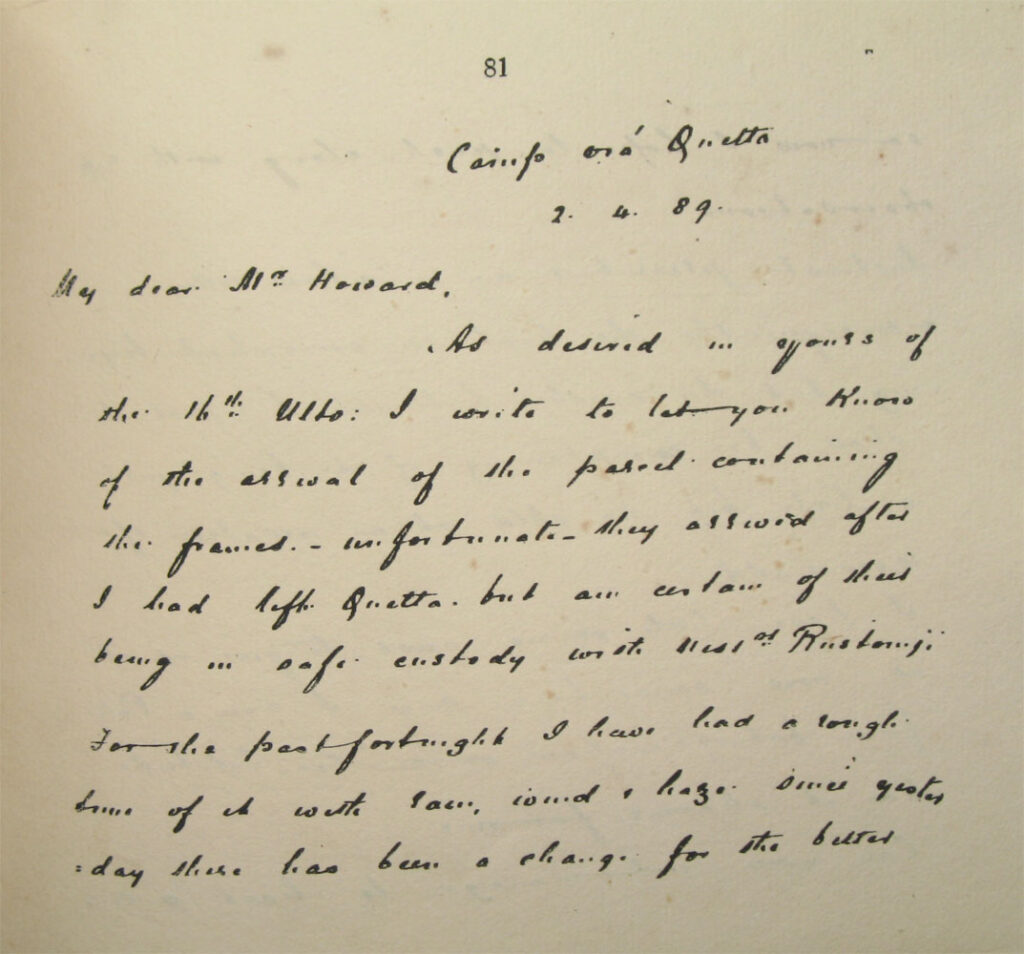 81
Camp viâ Quetta
2. 4. 89.
My dear Mr Howard,
As desired in yours of
the 16th Ulto: I write to let you know
of the arrival of the parcel containing
the frames. - unfortunate- they arrived after
I had left Quetta. but am certain of their
being in safe custody with Messrs Rustomji
For the past fortnight I have had a rough
time of it with rain, wind & haze. since yester
=day there has been a change for the better